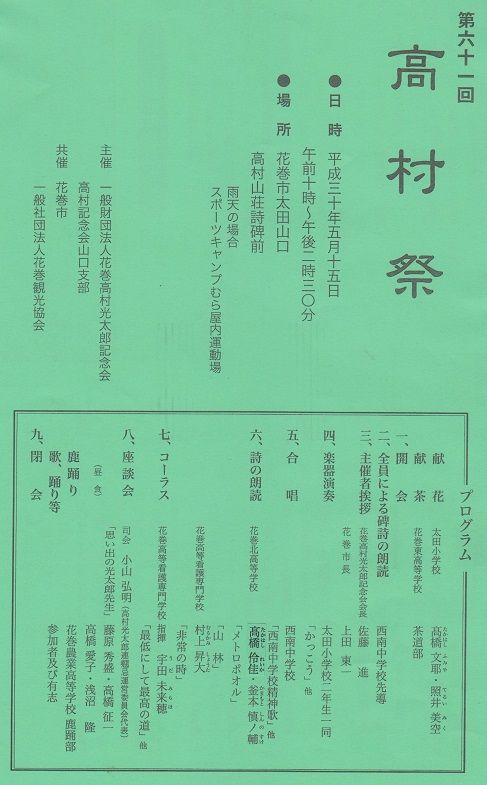 第六十一回
高村祭
●日時 平成三十年五月十五日
午前十時～午後二時三〇分
●場所 花巻市太田山口
高村山荘詩碑前
雨天の場合
スポーツキャンプむら屋内運動場
主催 一般財団法人花巻高村光太郎記念会
高村記念会山口支部
共催 花巻市
一般社団法人花巻観光協会
プログラム
献花 太田小学校 髙橋 文耶・照井 美空
献茶 花巻東高等学校 茶道部
一、開会
二、全員による碑詩の朗読 西南中学校先導
三、主催者挨拶 花巻高村光太郎記念会会長 佐藤 進
花巻市長 上田 東一
四、楽器演奏 太田小学校二年生一同
「かっこう」他
五、合唱 西南中学校
「西南中学校精神歌」他
六、詩の朗読 花巻北高等学校 髙橋 伶佳・釜本 慎ノ輔
「メトロポオル」
「山林」
花巻高等看護専門学校 村上 昇大
「非常の時」
七、コーラス 花巻高等看護専門学校 指揮 宇田 未来穂
「最低にして最高の道」他
八、座談会 司会 小山 弘明（高村光太郎連翹忌運営委員会代表）
「思い出の光太郎先生」 藤原 秀盛・高橋 征一
高橋 愛子・浅沼 隆
（昼食）
鹿踊り 花巻農業高等学校 鹿踊部
歌、踊り等 参加者及び有志
九、閉会